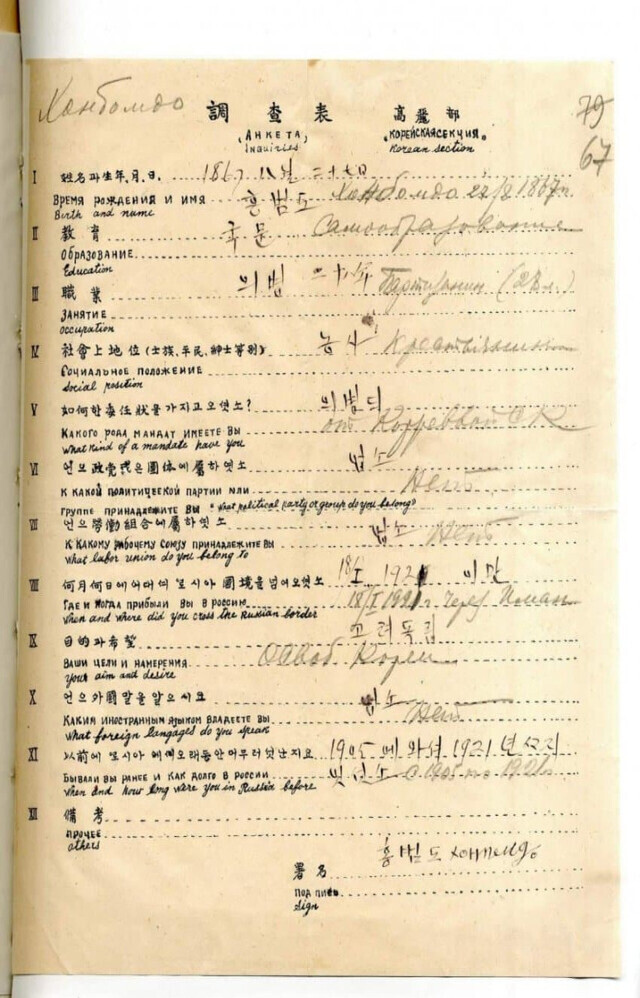 Ханбомдо
79
67
調 查 表 高麗部
(АНКЕТА) (КОРЕЙСКАЯ СЕКЦИЯ)
Inquiries Korean section
I 姓名과生年,月,日. 1867 八月 二十七日
ВРЕМЯ РОЖДЕНИЯ И ИМЯ 홍범도 Ханбомдо 1867
Birth and name
II 敎育 국문 Самообразование
ОБРАЗОВАНИЕ
Education
III 職業 의병 二十年 Партизан (28 л.)
ЗАНЯТИЕ
occupation
IV 社會上地位(士族、平民、紳士等別) 농사
СОЦИАЛЬНОЕ ПОЛОЖЕНИЕ
social position
V 如何한委任狀을가지고오엿소? 의병ᄃᆡ
КАКОГО РОДА МАНДАТ ИМЕЕТЕ ВЫ от
What kind of a mandate have you
VI 언으政党或은團体에屬하엿소 업소
К КАКОЙ ПОЛИТИЧЕСКОЙ ПАРТИИ ИЛИ Нет
ГРУППЕ ПРИНАДЛЕЖИТЕ ВЫ What political party or group do you belong?
VII 언으勞働組合에屬하엿소 업소
К КАКОМУ РАБОЧЕМУ СОЮЗУ ПРИНАДЛЕЖИТЕ ВЫ Нет
What labor union do you belong to
VIII 何月何日에어대로ᄂᆞ시아國境을넘어오엿소 18/I 1921 이만
ГДЕ И КОГДА ПРИБЫЛИ ВЫ В РОССИЮ 18/I 1921 г. через Иман
When and where did you cross the Russian border
IX 目的과希望 고려독립
ВАШИ ЦЕЛИ И НАМЕРЕНИЯ Освоб Кореи
your aim and desire
X 언으外國말을알으시요 업소
КАКИМ ИНОСТРАННЫМ ЯЗЫКОМ ВЛАДЕЕТЕ ВЫ Нет
What foreign langages do you speak
XI 以前에 1921년
БЫВАЛИ ВЫ РАНЕЕ И КАК ДОЛГО В РОССИИ
When and how long were you in Russia before
XII 備考
ПРОЧЕЕ
others
홍범도
署名
ПОДПИСЬ
Sign